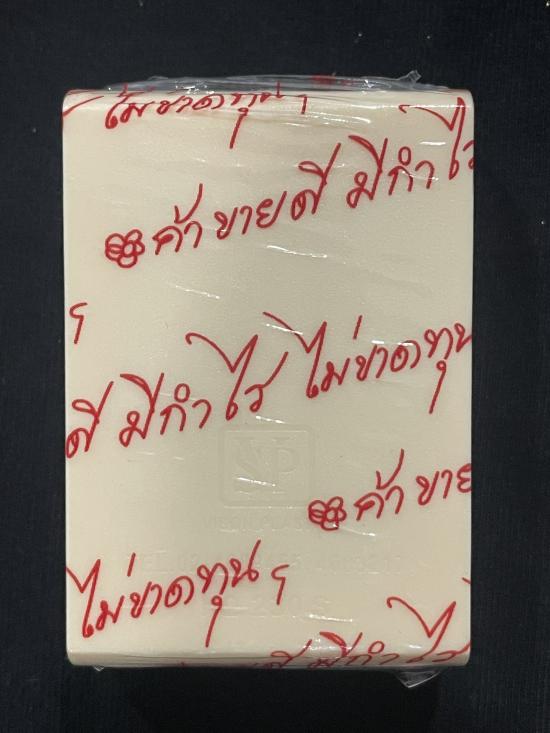 ไม่ขาดทุน ๆ
ค้าขายดี มีกำไร
ๆ
ดี มีกำไร ไม่ขาดทุน
ค้าขาย
ไม่ขาดทุน ๆ
ดี มีกำไร